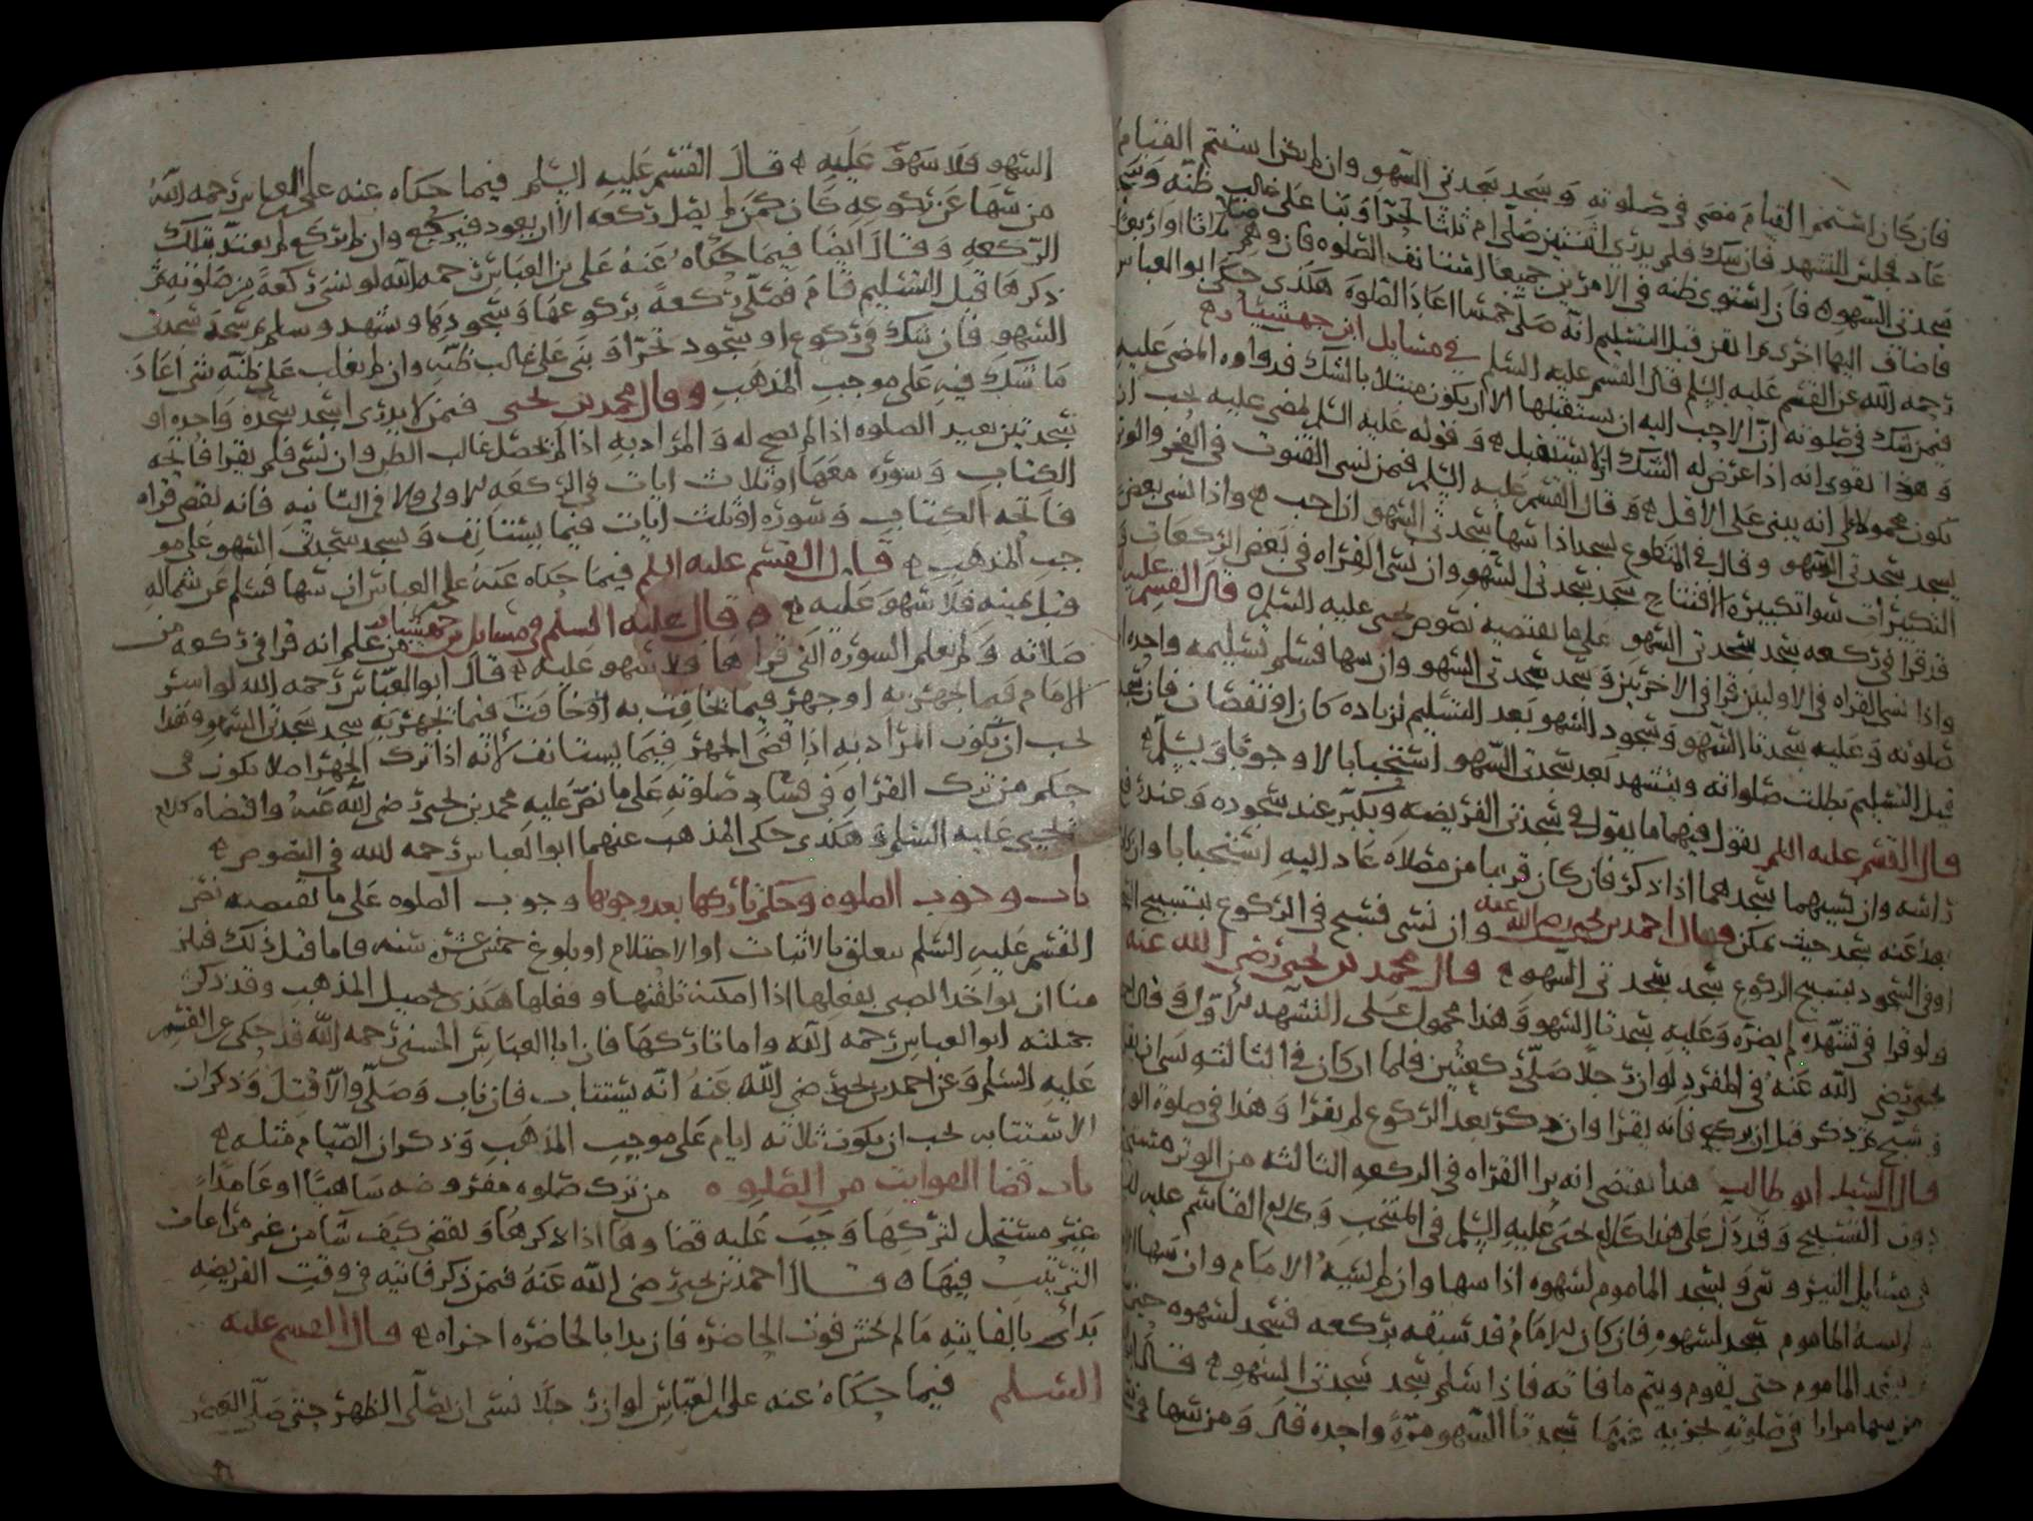 فان كان استتم القيام مضى في صلوته وسجد سجدتي السهو وان لم يكن استتم القيام
عاد فجلس للتشهد فان شك فلم يدري اثنتين صلى ام ثلثا تحرا وبنا على غالب ظنه وسجد
سجدتي السهو فان استوى ظنه في الامرين جميعا استانف الصلوه فان وهم ثلاثا او اربعا
فاضاف اليها اخرى ثم ايقن قبل التسليم انه صلى خمسا اعاد الصلوة هكذى حكى ابو العباس
رحمه الله عن القسم عليه السلم قال القسم عليه السلم في مسايل ابن جهشيار
فيمن شك في صلوته ان الاحب اليه ان يستقبلها الا ان يكون مبتلا بالشك فدواوه المضى عليه
وهذا يقوى انه اذا عرض له الشك اولا يستقبل وقوله عليه السلم يمضى عليه يجب ان
يكون محمولا على انه يبنى على الاقل وقال القسم عليه السلم فمن نسى القنوت في الفجر والوتر
يسجد سجدتي السهو وقال في المتطوع يسجد اذا سها سجدتي السهو ان احب واذا نسى بعض
التكبيرات سوا تكبيرة الافتتاح سجد سجدتي السهو وان نسى القراه في بعض الركعات و
قد قرا في ركعه سجد سجدتي السهو على ما يقتضيه نصوص يحيى عليه السلم قال القسم عليه
واذا نسى القراه في الاوليين قرا في الاخريين وسجد سجدتي السهو وان سها فسلم تسليمه واحده
صلوته وعليه سجدتا السهو وسجود السهو بعد التسليم لزياده كان او نقصان فان سجد
قبل التسليم بطلت صلواته ويتشهد بعد سجدتي السهو استحبابا لا وجوبا ويسلم
قال القسم عليه السلم يقول فيهما ما يقول في سجدتي الفريضه ويكبر عند سجوده وعند رفع
راسه وان نسيهما سجدهما اذا ذكر فان كان قريبا من مصلاه عاد اليه استحبابا وان
بعد عنه سجد حيث يمكن قال احمد بن يحيى رضي الله عنه وان نسى فسبح في الركوع بتسبيح
او في السجود بتسبيح الركوع سجد سجدتي السهو قال محمد بن يحيى رضي الله عنه
ولو قرا في تشهده لم يضره وعليه سجدتا السهو وهذا محمول على التشهد الاول وقال
يحيى رضي الله عنه في المفرد لو ان رجلا صلى ركعتين فلما ان كان في الثالثه نسى ان
سبح ثم ذكر قبل ان يركع فانه يقرا وان ذكر بعد الركوع لم يقرا وهذا في صلوة
قال السيد ابو طالب هذا يقتضى انه يرا القراه في الركعه الثالثه من الوتر
دون التسبيح وقد دل على هذا كلام يحيى عليه السلم في المنتخب وكلام القاسم عليه
في مسايل النيروسي ويسجد الماموم لسهوه اذا سها وان لم يسه الامام وان سها
لم يسه الماموم سجد لسهوه فان كان الامام قد سبقه بركعه فسجد لسهوه حين
يسجد الماموم حتى يقوم ويتم ما فاته فاذا سلم سجد سجدتي السهو قال
من سها مرارا في صلوته يجزيه عنها سجدتا السهو مرة واحده قال ومن سها في
السهو فلا سهو عليه قال القسم عليه السلم فيما حكاه عنه علي بن العباس رحمه الله
من سها عن ركوعه كان كمن لم يصل ركعه الا ان يعود فيركع وان لم يركع لم يعتد بتلك
الركعه وقال ايضا فيما حكاه عنه علي بن العباس رحمه الله لو نسى ركعة من صلوته ثم
ذكرها قبل التسليم قام فصلى ركعة بركوعها وسجودها وتشهد وسلم ثم سجد سجدتي
السهو فان شك في ركوع او سجود تحرا وبنى على غالب ظنه وان لم يغلب على ظنه شى اعاد
ما شك فيه على موجب المذهب وقال محمد بن يحيى فيمن لا يدرى اسجد سجده واحده او
سجدتين يعيد الصلوه اذا لم يصح له والمراد به اذا لم يحصل غالب الظن وان نسى فلم يقرا فاتحه
الكتاب وسوره معها او ثلاث ايات في الركعه الاولى ولا في الثانيه فانه يقضى قراه
فاتحه الكتاب وسوره او ثلث ايات فيما يستانف ويسجد سجدتي السهو على مو
جب المذهب قال القسم عليه السلم فيما حكاه عنه علي بن العباس ان سها فسلم عن شماله
قبل يمينه فلا سهو عليه وقال عليه السلم في مسايل بن جهشيار من علم انه قرا في ركعه من
صلاته ولم يعلم السوره التي قراها فلا سهو عليه قال ابو العباس رحمه الله لو اسر
الامام فيما يجهر به او جهر فيما يخافت به او خافت فيما يجهر به سجد سجدتي السهو وهذا
يجب ان يكون المراد به اذا قضى الجهر فيما يستانف لانه اذا ترك الجهر اصلا يكون في
حكم من ترك القراه في فساد صلوته على ما نص عليه محمد بن يحيى رضي الله عنه واقتضاه كلام
يحيى عليه السلم وهكذى حكى المذهب عنهما ابو العباس رحمه الله في النصوص
باب وجوب الصلوه وحكم تاركها بعد وجوبها وجوب الصلوه على ما يقتضيه نص
القسم عليه السلم يتعلق بالانبات او الاحتلام او بلوغ خمس عشره سنه فاما قبل ذلك فيلز
منا ان نواخذ الصبى بفعلها اذا امكنه تلقنها وفعلها هذا تحصيل المذهب وقد ذكر
جملته ابو العباس رحمه الله واما تاركها فان ابا العباس الحسنى رحمه الله قد حكى عن القسم
عليه السلم وعن احمد بن يحيى رضي الله عنه انه يستتاب فان تاب وصلى والا قتل وذكر ان
الاستتابه يجب ان يكون ثلاثه ايام على موجب المذهب وذكر ان الصيام مثله
باب قضا الفوايت من الصلوه من ترك صلوه مفروضه ساهيا او عامدا
غير مستحل لتركها وجب عليه قضاوها اذا ذكرها ويقضى كيف شا من غير مراعات
الترتيب فيها قال احمد بن يحيى رضي الله عنه فمن ذكر فايته في وقت الفريضه
بدائ بالفايته ما لم يخش فوت الحاضره فان بدا بالحاضره اجزاه قال القسم عليه
السلم فيما حكاه عنه علي بن العباس لو ان رجلا نسى ان يصلى الظهر حتى صلى العصر